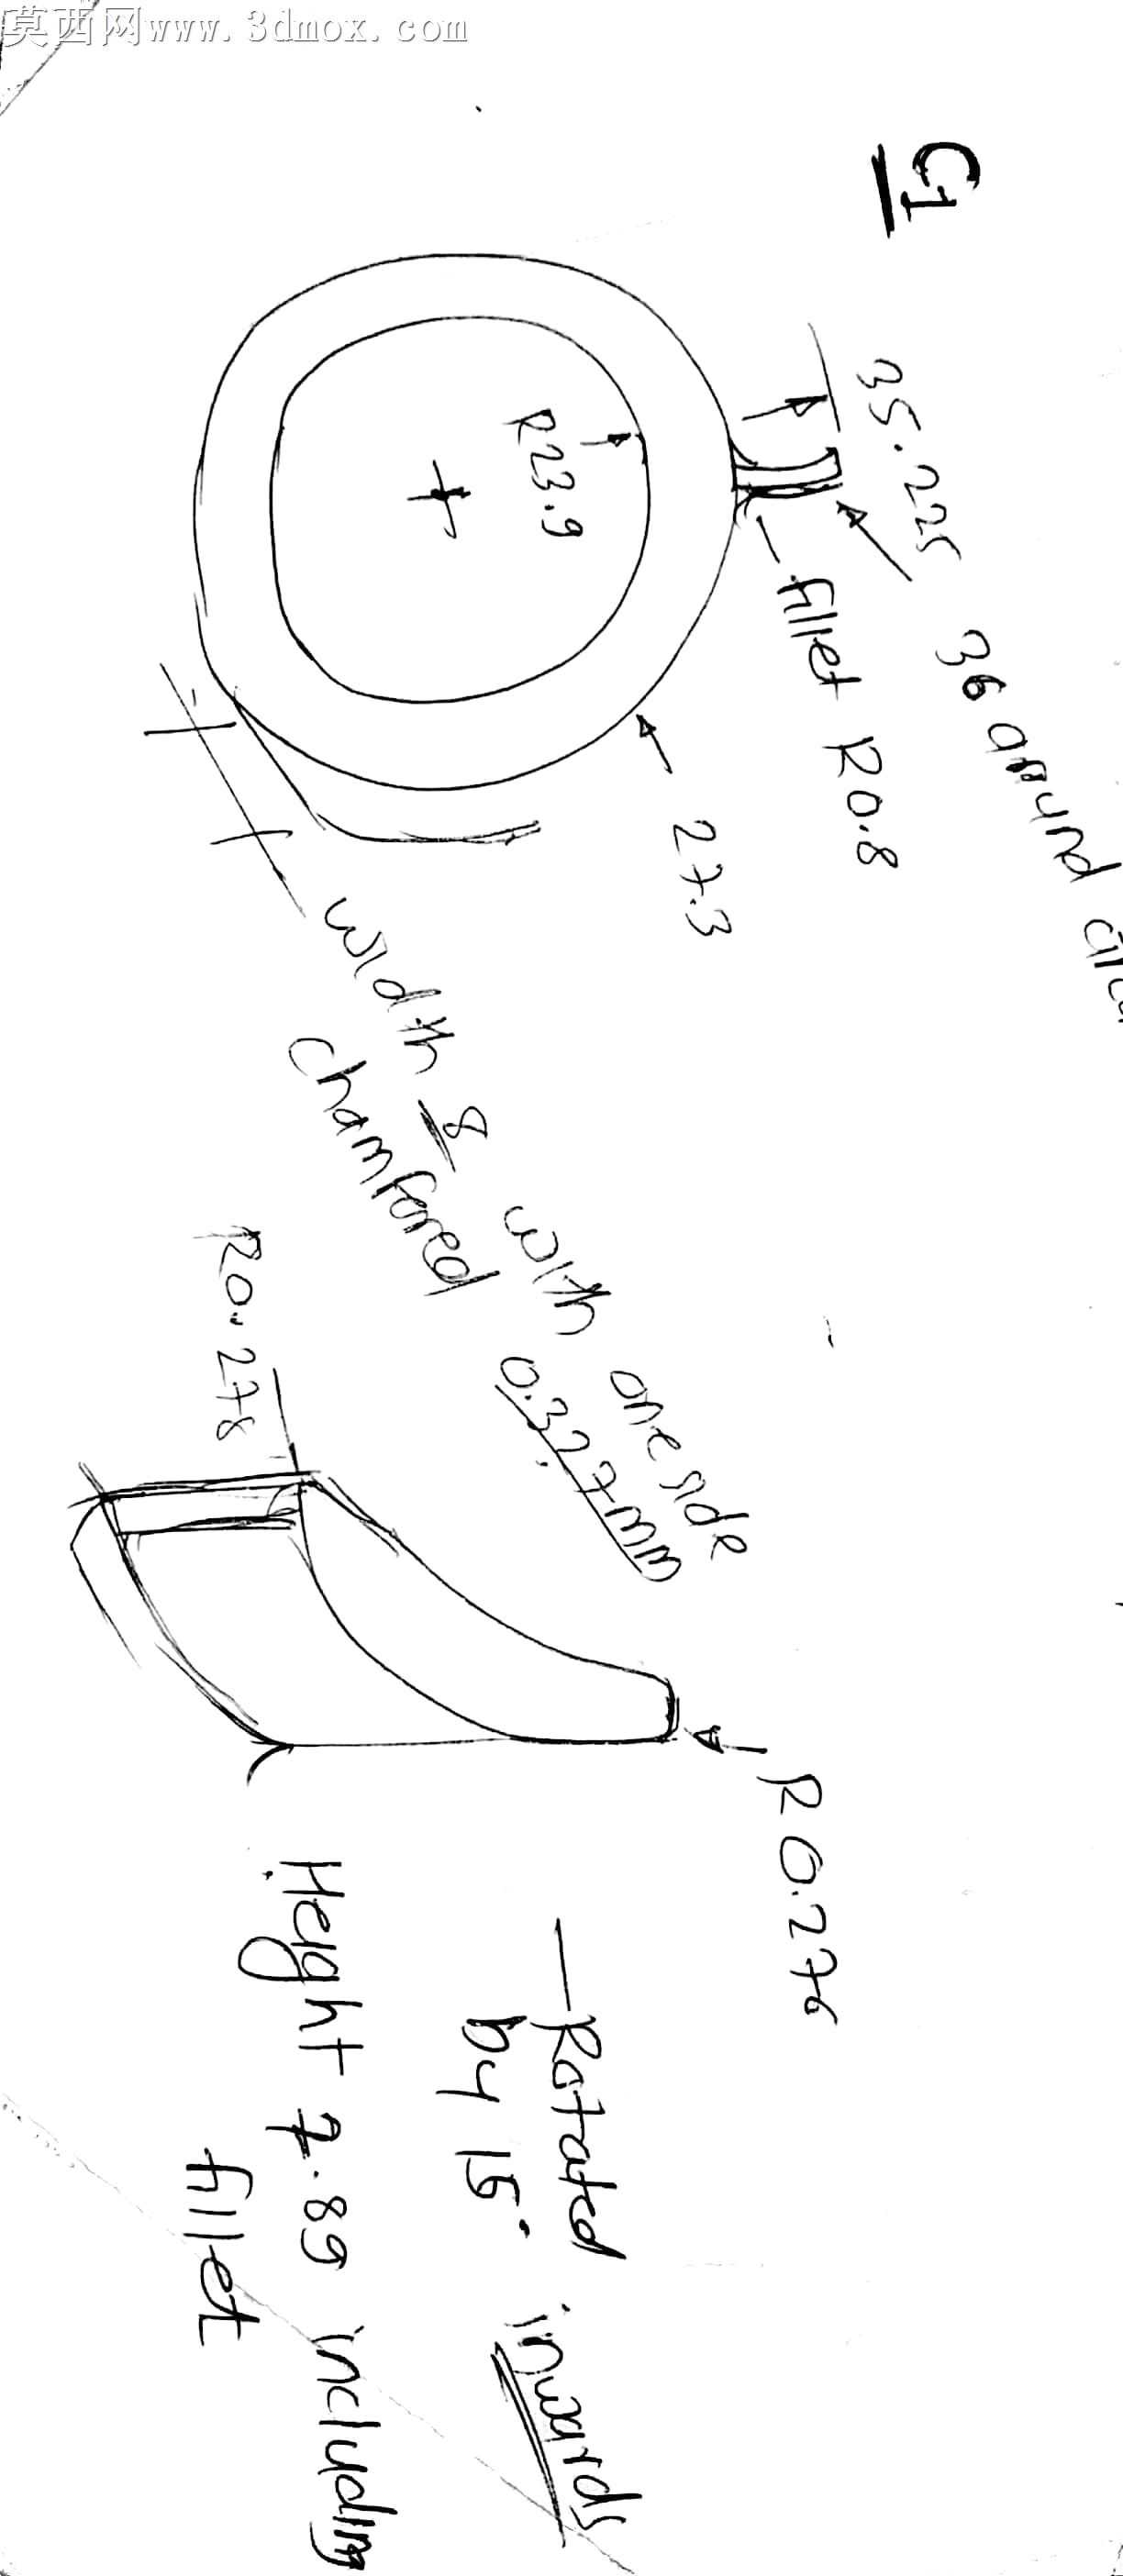 莫西网www.3dmox.com
C1
35.225
36 around
R23.9
fillet R0.8
27.3
width 8 with one side
chamfered 0.327mm
R0.278
R0.276
Rotated
by 15° inwards
Height 7.89 including
fillet